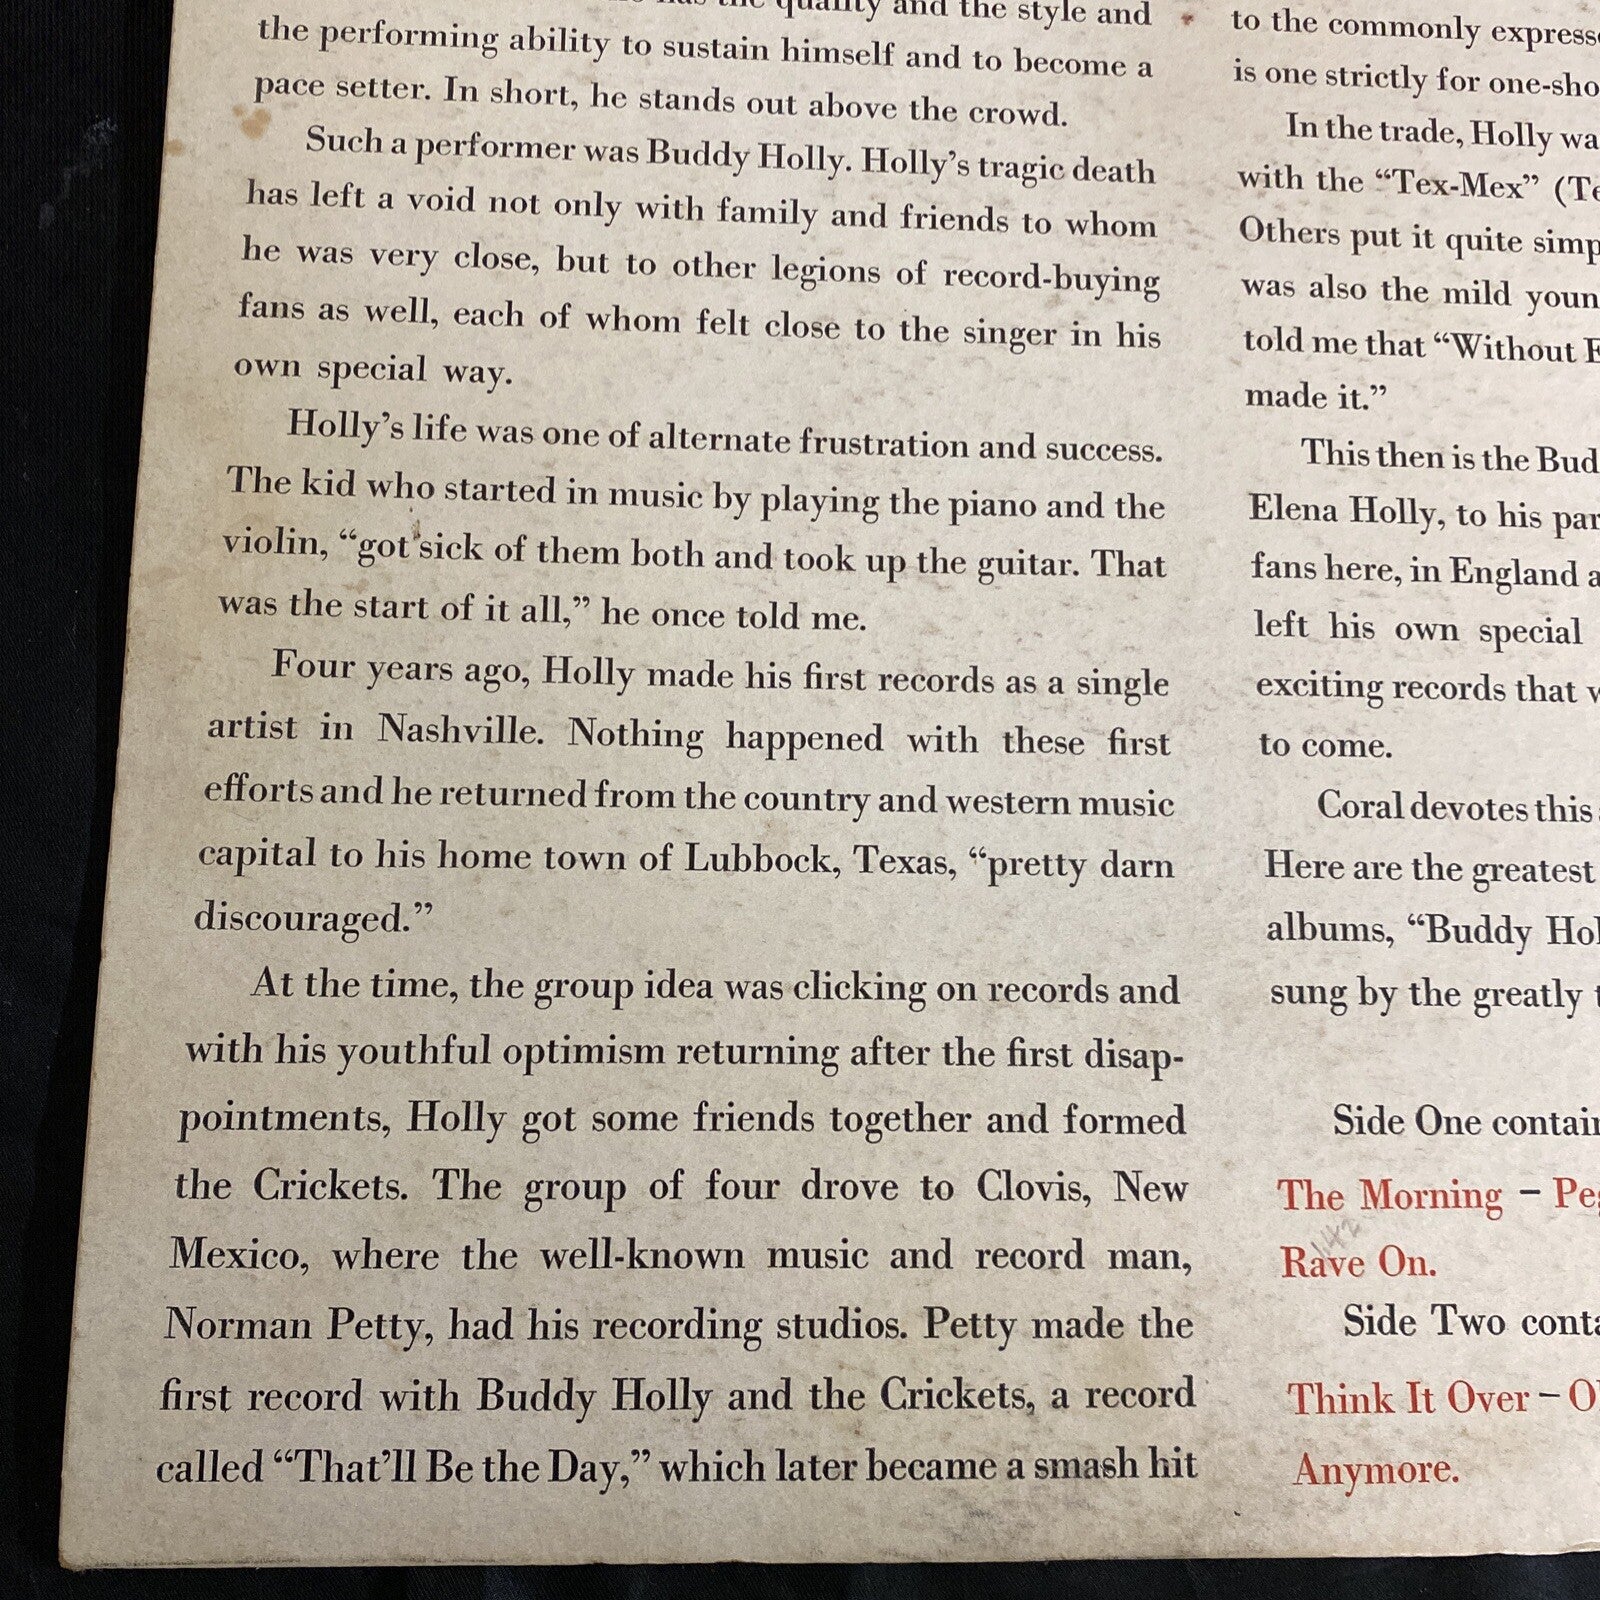 quality and the style and
the performing ability to sustain himself and to become a
pace setter. In short, he stands out above the crowd.
Such a performer was Buddy Holly. Holly's tragic death
has left a void not only with family and friends to whom
he was very close, but to other legions of record-buying
fans as well, each of whom felt close to the singer in his
own special way.
Holly's life was one of alternate frustration and success.
The kid who started in music by playing the piano and the
violin, “got sick of them both and took up the guitar. That
was the start of it all,” he once told me.
Four years ago, Holly made his first records as a single
artist in Nashville. Nothing happened with these first
efforts and he returned from the country and western music
capital to his home town of Lubbock, Texas, “pretty darn
discouraged.”
At the time, the group idea was clicking on records and
with his youthful optimism returning after the first disap-
pointments, Holly got some friends together and formed
the Crickets. The group of four drove to Clovis, New
Mexico, where the well-known music and record man,
Norman Petty, had his recording studios. Petty made the
first record with Buddy Holly and the Crickets, a record
called “That'll Be the Day,” which later became a smash hit
to the commonly
is one strictly for
In the trade, Holly
with the “Tex-Mex”
Others put it quite
was also the mild
told me that “Without
made it.”
This then is the
Elena Holly, to his
fans here, in England
left his own special
exciting records that
to come.
Coral devotes this
Here are the greatest
albums, “Buddy
sung by the greatly
Side One
The Morning –
Rave On.
Side Two
Think It Over –
Anymore.